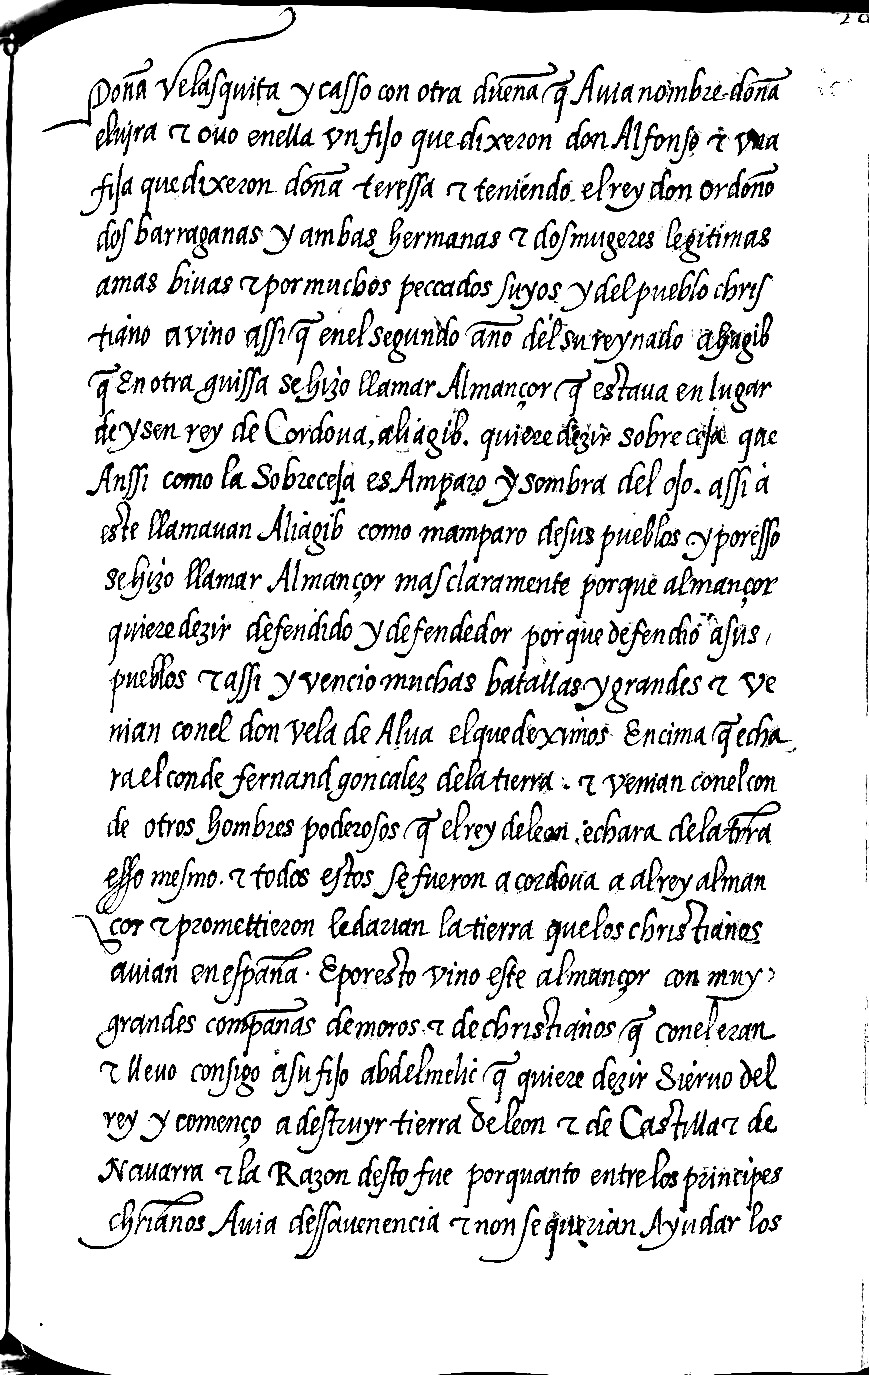 Doña Velasquita y casso con otra dueña q̃ Auia nombre doña
eluira τ ouo enella vn fijo que dixeron don Alfonso τ vna
fija que dixeron doña teressa τ teniéndo el rey don ordoño
dos barraganas y ambas hermanas τ dos mugeres legitimas
amas biuas τ por muchos peccados suyos y del pueblo chris
tiano avino assi q̃ enel segundo año del su reynado ahagib
q̃ En otra guissa se hizo llamar Almançor q̃ estaua en lugar
de ysen rey de Cordoua, aliagib. quiere dezir sobre ceja que
Anssi como la Sobreceja es Amparo y sombra del ojo. assi à
este llamauan Aliagib como mamparo desus pueblos y poresso
se hizo llamar Almançor mas claramente porque almançor
quiere dezir defendido y defendedor porque defendio asus
pueblos τ assi y vencio muchas batallas y grandes τ ve
nian conel don vela de Alua el que deximos Encima q̃ echa
ra el conde fernand goncalez dela tierra. τ venian conel con
de otros hombres poderosos q̃ el rey de leon echara dela trr̃a
esso mesmo. τ todos estos se fueron a cordoua a al rey alman
çor τ promettieron le darian la tierra que los christianos
auian en españa. E poresto vino este almançor con muy
grandes compañas de moros τ de christianos q̃ conel eran
τ lleuo consigo àsu fijo abdelmelic q̃ quiere dezir Sieruo del
rey y començo a destruyr tierra de leon τ de Castilla τ de
Nauarra τ la Razon desto fue porquanto entre los principes
chr̃ianos Auia dessauenencia τ non se querian Ayudar los